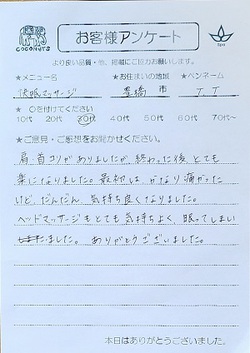 COCONUTS
お客様アンケート
spa
より良い品質・他、接遇にご協力お願いします。
★メニュー名 ★お住まいの地域 ★ペンネーム
快眠マッサージ 豊橋 市 T T
★ ○を付けてください
10代 20代 30代 40代 50代 60代 70代
★ご意見・ご感想をお聞かせください。
肩・首コリがありましたが、終わった後とても
楽になりました。最初は、かなり痛かった
けど、だんだん、気持ち良くなりました。
ヘッドマッサージもとても気持ちよく、眠ってしまい
ました。ありがとうございました。
本日はありがとうございました。